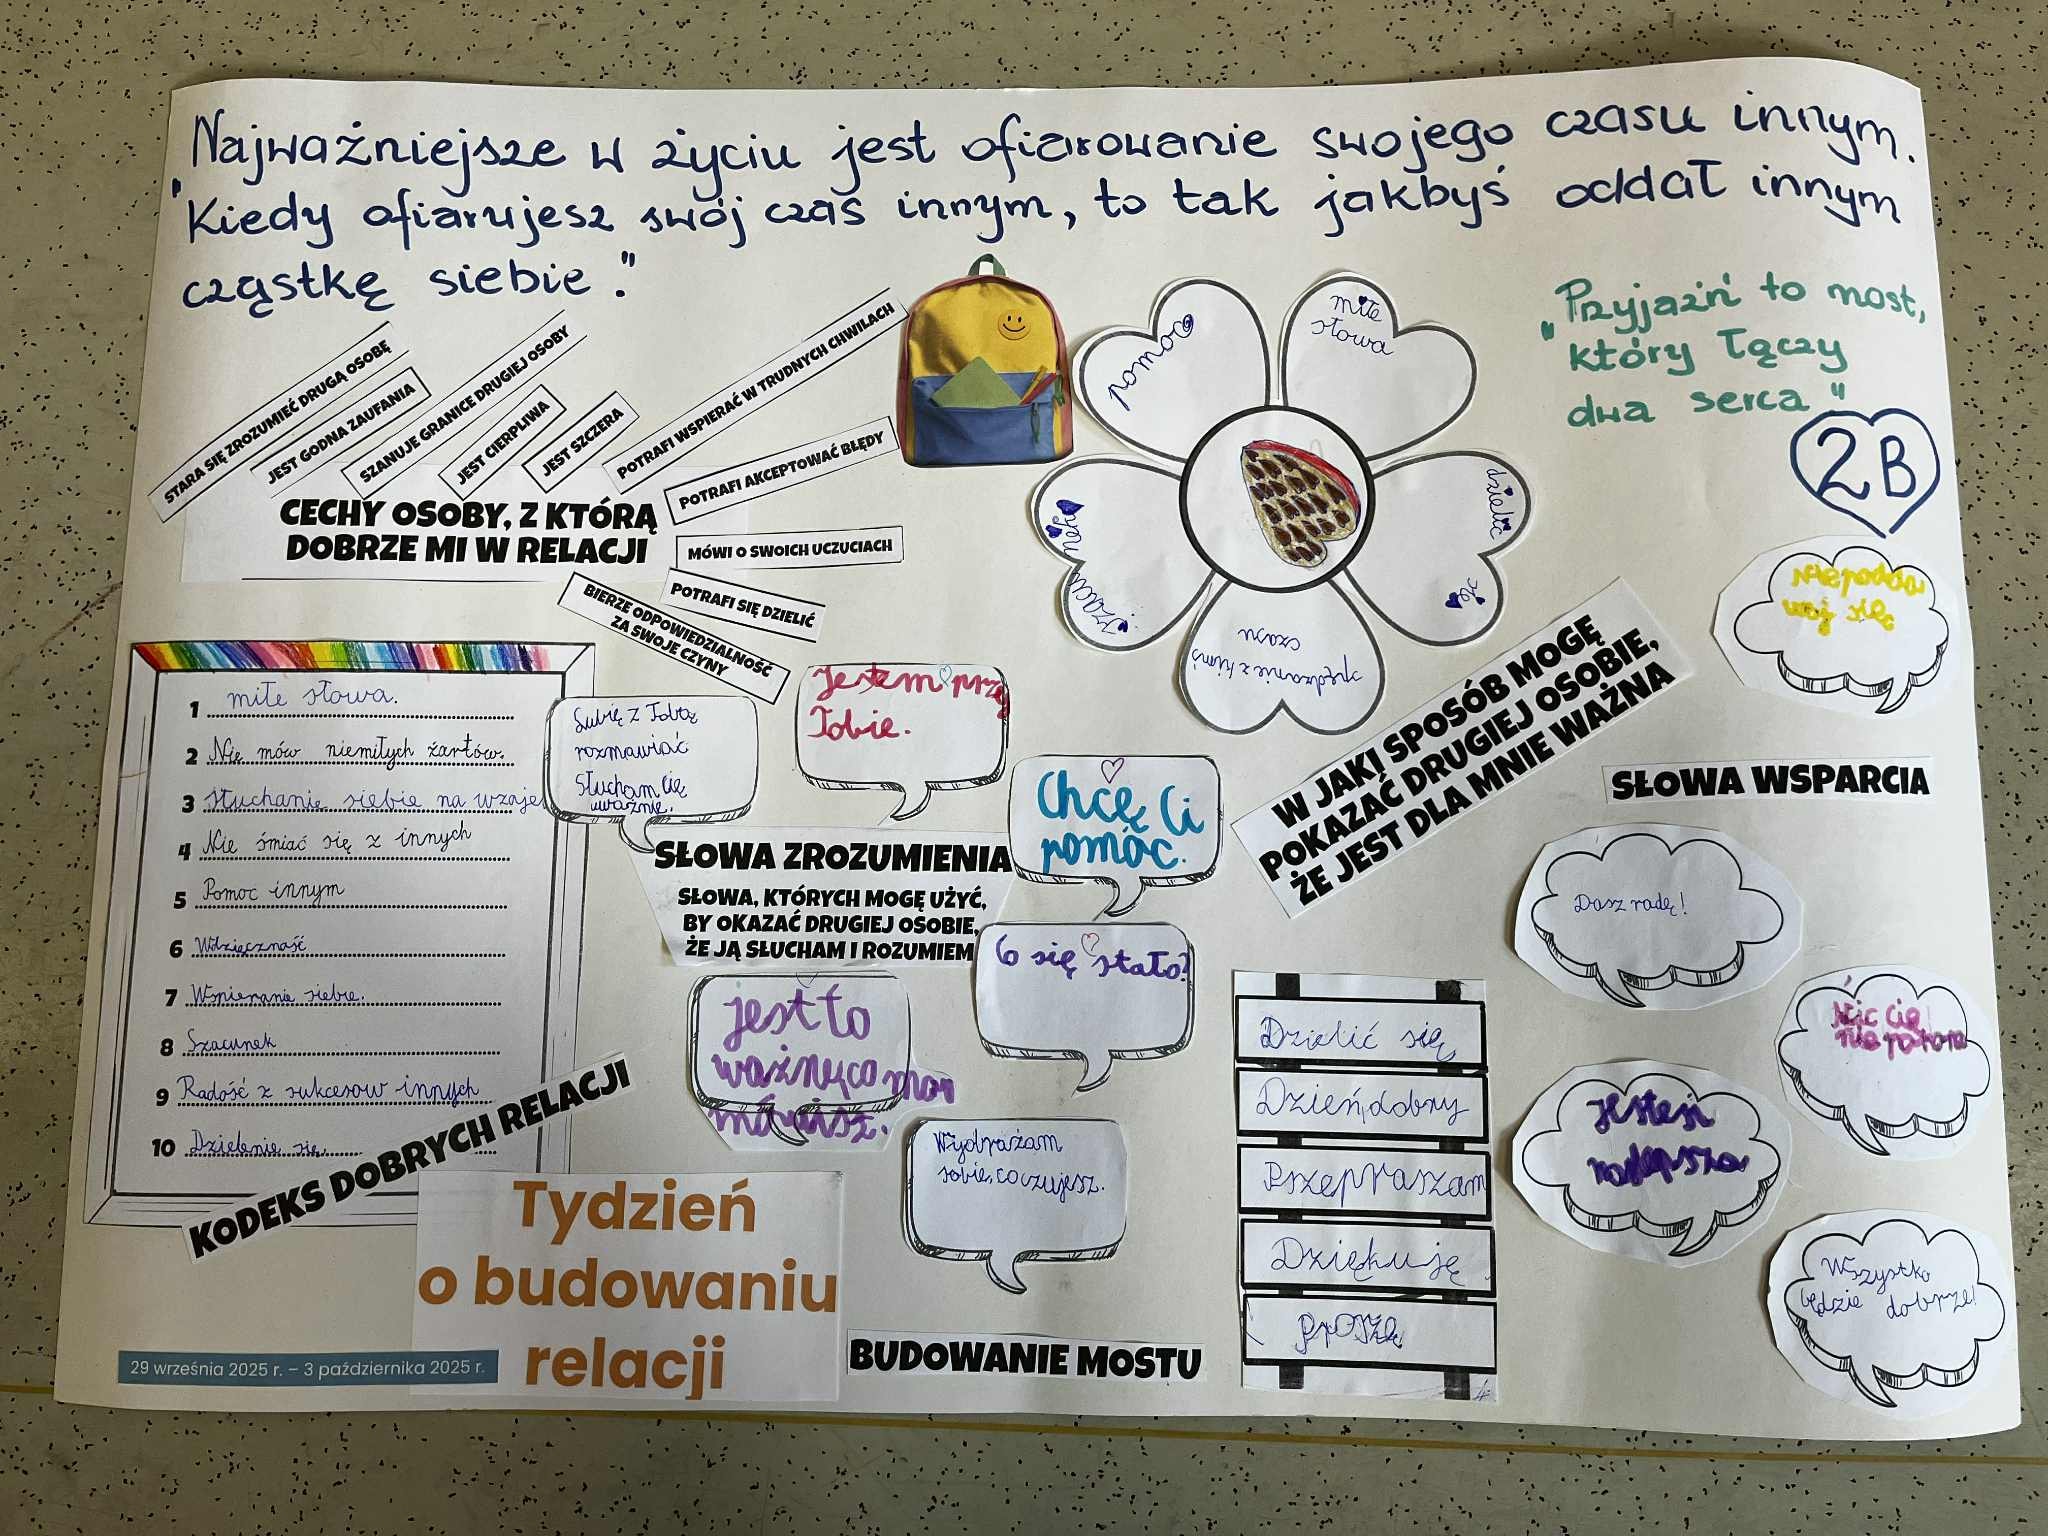 Najważniejsze w życiu jest ofiarowanie swojego czasu innym.
"Kiedy ofiarujesz swój czas innym, to tak jakbyś oddał innym
cząstkę siebie."
"Przyjaźń to most,
który łączy
dwa serca"
2B
STARA SIĘ ZROZUMIEĆ DRUGĄ OSOBĘ
JEST GODNA ZAUFANIA
SZANUJE GRANICE DRUGIEJ OSOBY
JEST CIERPLIWA
JEST SZCZERA
POTRAFI WSPIERAĆ W TRUDNYCH CHWILACH
POTRAFI AKCEPTOWAĆ BŁĘDY
MÓWI O SWOICH UCZUCIACH
POTRAFI SIĘ DZIELIĆ
BIERZE ODPOWIEDZIALNOŚĆ
ZA SWOJE CZYNY
CECHY OSOBY, Z KTÓRĄ
DOBRZE MI W RELACJI
pomoc
miłe
słowa
dzielić
się
spędzanie z kimś
czasu
W JAKI SPOSÓB MOGĘ
POKAZAĆ DRUGIEJ OSOBIE,
ŻE JEST DLA MNIE WAŻNA
1 miłe słowa.
2 Nie mów niemiłych żartów.
3 Słuchanie siebie na wzaje
4 Nie śmiać się z innych
5 Pomoc innym
6 Wdzięczność
7 Wspieranie siebie.
8 Szacunek
9 Radość z sukcesow innych
10 Dzielenie się.
KODEKS DOBRYCH RELACJI
Lubię z Tobą
rozmawiać
Słucham Cię
uważnie.
Jestem przy
Tobie.
Chcę Ci
pomóc.
SŁOWA ZROZUMIENIA
SŁOWA, KTÓRYCH MOGĘ UŻYĆ,
BY OKAZAĆ DRUGIEJ OSOBIE,
ŻE JĄ SŁUCHAM I ROZUMIEM
Co się stało?
jest to
ważne, co
mówisz.
Wyobrażam
sobie, co czujesz.
SŁOWA WSPARCIA
Dasz radę!
Nic Cię
Jesteś
najlepsza
Wszystko
będzie dobrze!
Dzielić się
Dzień dobry
Przepraszam
Dziękuję
proszę
BUDOWANIE MOSTU
Tydzień
o budowaniu
relacji
29 września 2025 r. – 3 października 2025 r.